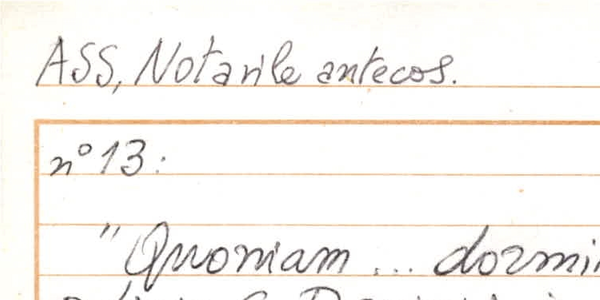 ASS, Notarile antecos.
n° 13:
"Quoniam ... dormi